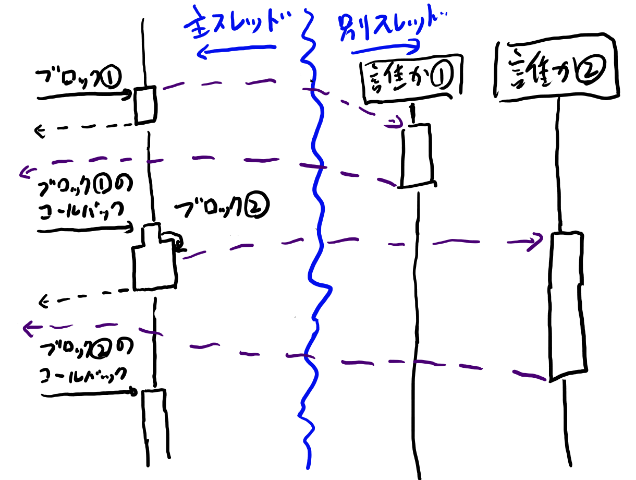 主スレッド
別スレッド
ブロック①
誰か①
誰か②
ブロック①の
コールバック
ブロック②
ブロック②の
コールバック